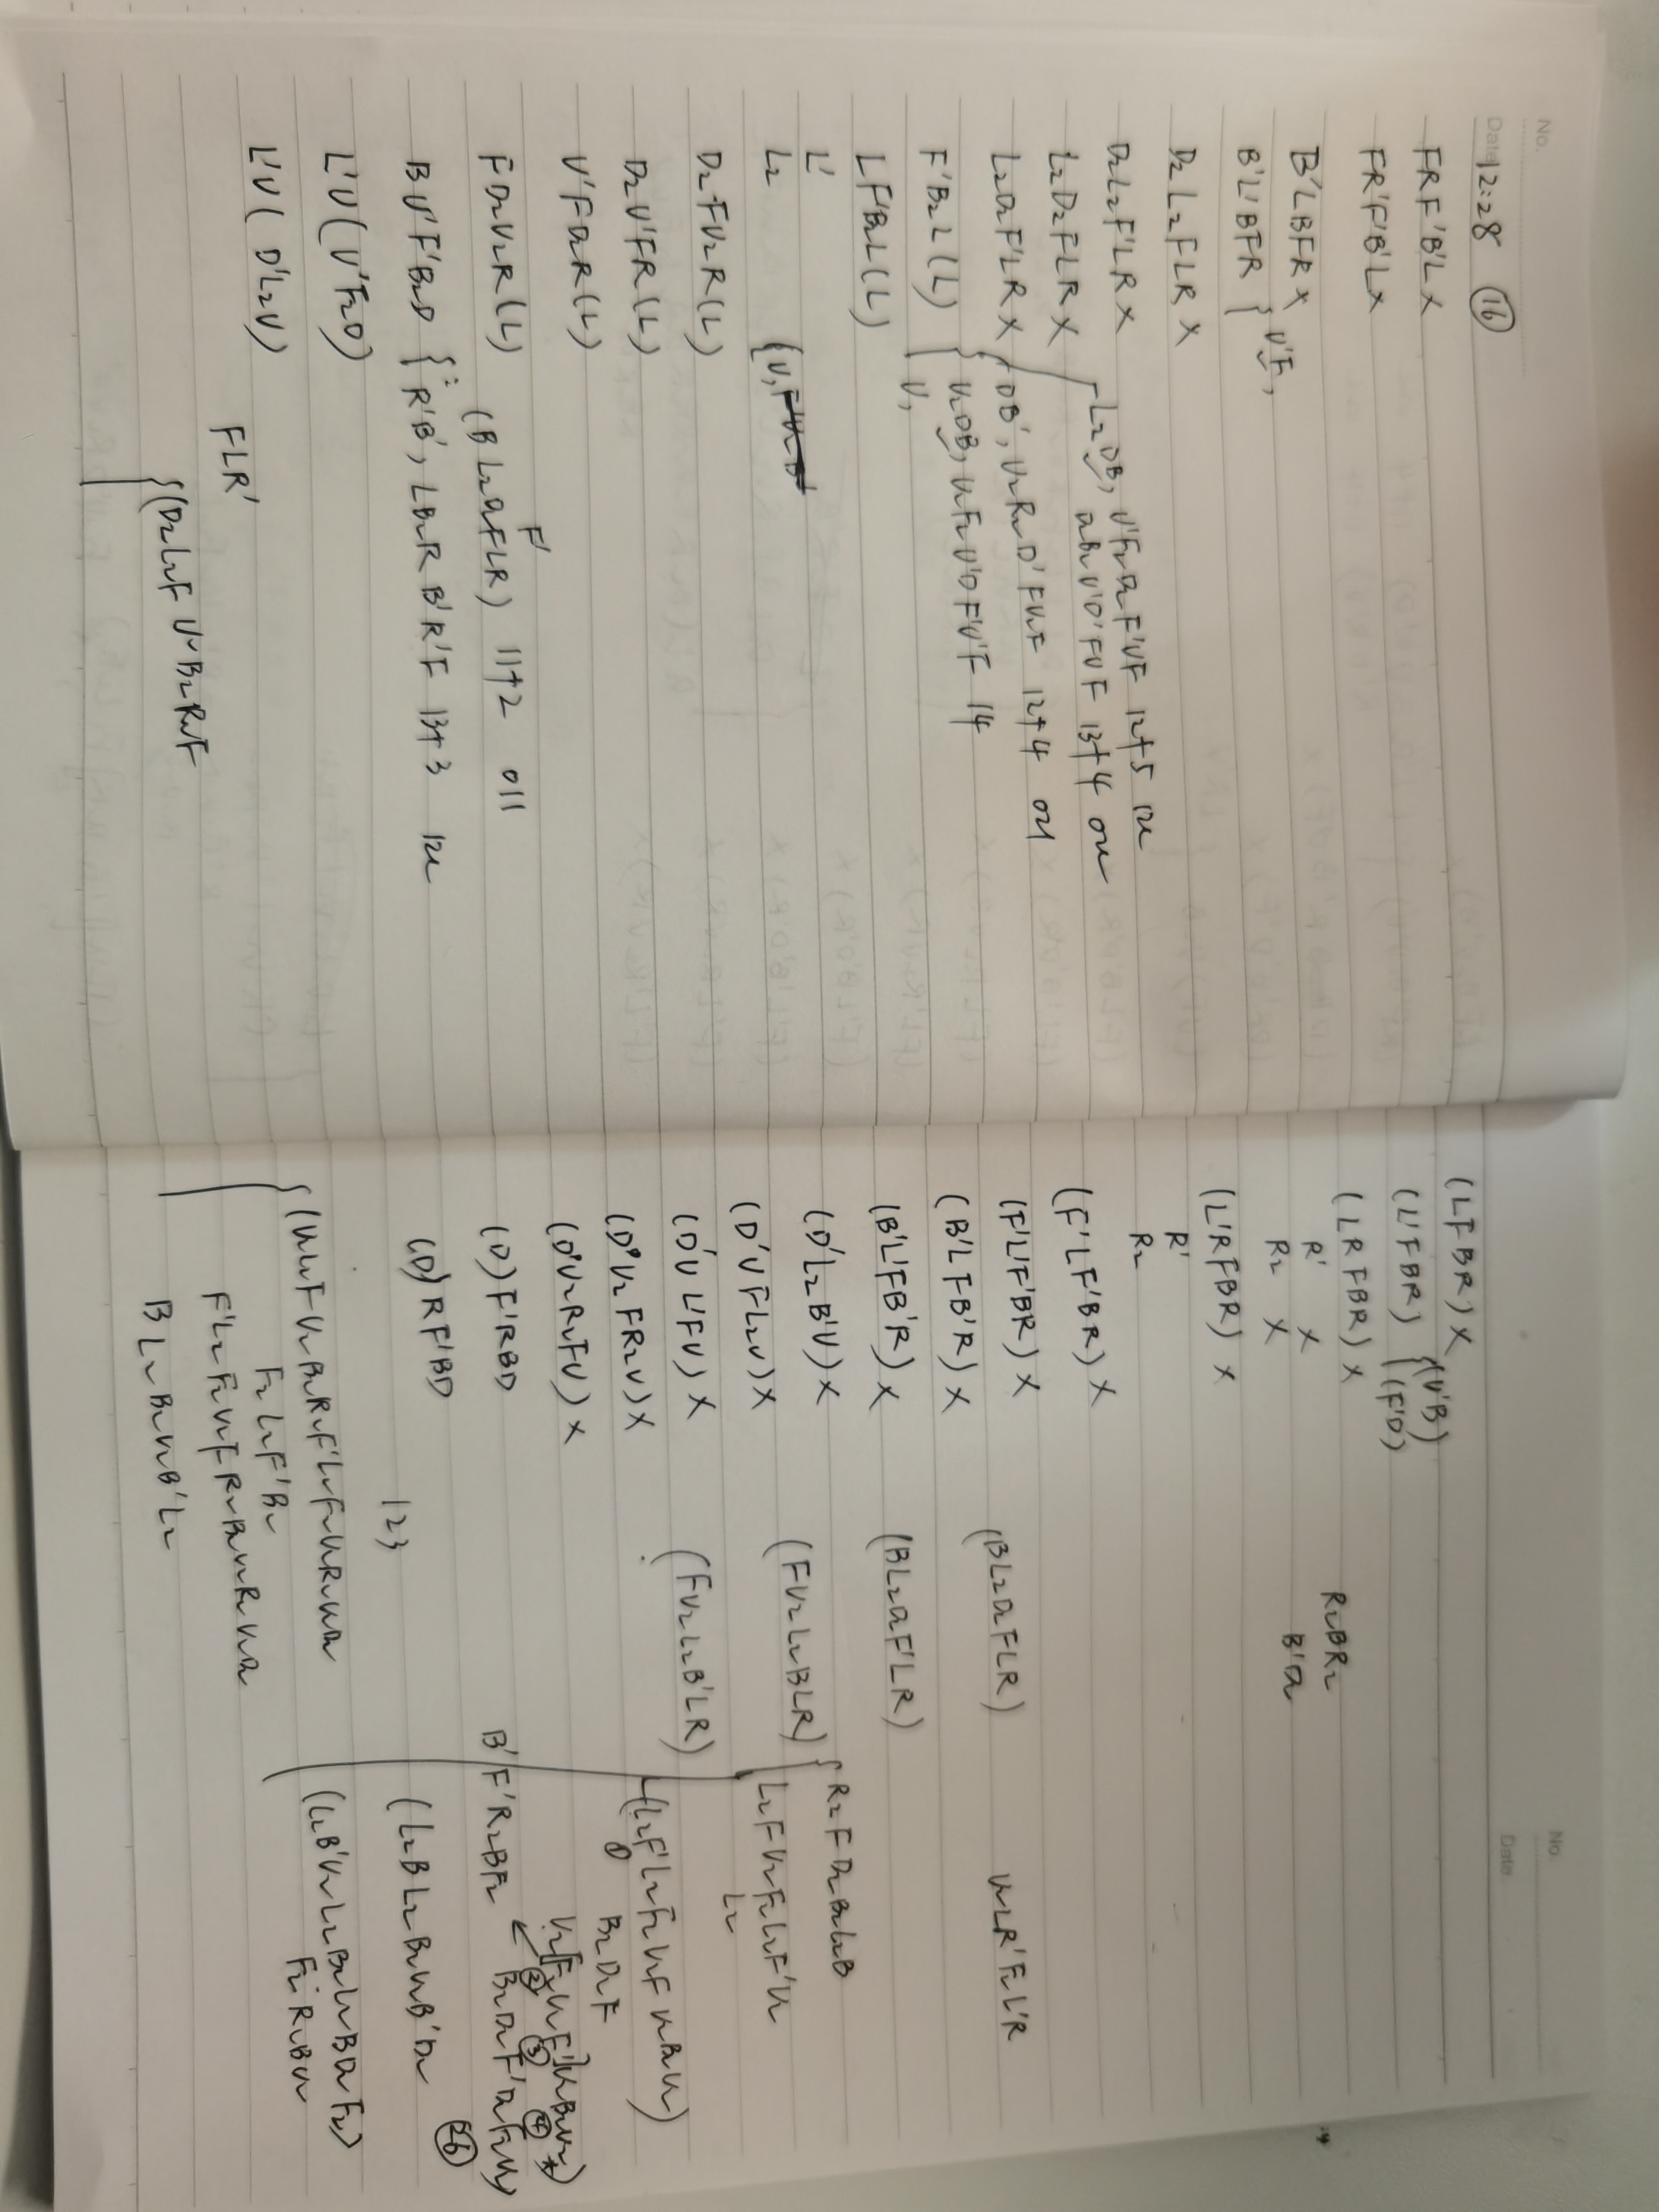 No.
Date 12:28 ⑯
FRF'B'L x
FR'F'B'L x
B'LBFR x
B'L'BFR { U'F,
D2L2FLR x
D2L2F'LR x
L2D2FLR x { L2DB, U'F2D2F'UF 12+5
D2B2U'D'FUF 13+4
L2D2F'LR x { DB', U2R2D'FU2F 12+4
F'B2L(L) { U2DB, U2F2U'DF'U'F 14
U,
LF'B2L(L)
L'
L2 (U,
D2FU2R(L)
D2U'FR(L)
U'FD2R(L)
FD2U2R(L) (BL2D2FLR) 11+2 011
F'
BU'F'B2D { R'B', LB2RB'R'F 13+3
L'U(U'F2D)
L'U(D'L2U)
FLR'
{(D2L2FU2B2R2F
No.
Date
(LFBR) x
(L'FBR) {(U'B)
(F'D)
(LRFBR) x
R' x
R2 x
R2BR2
B'D2
(L'RFBR) x
R'
R2
(F'LF'BR) x
(F'L'F'BR) x (BL2D2FLR) U2LR'F2L'R
(B'LFB'R) x
(B'L'FB'R) x (BL2D2F'LR)
(D'L2B'U) x (FU2L2BLR) { R2FD2B2L2B
(D'UFL2U) x L2FU2F2L2F'U2
L2
(D'UL'FU) x (FU2L2B'LR) (L2F'L2F2U2FU2B2U2)
(D'U2FR2U) x B2D2F
(D'U2R2FU) x U2[F2U2F']U2B2U2*)
② ③ ④
(D)F'RBD B'F'R2BF2 B2D2F'D2F2U2)
(D)RF'BD (L2BL2B2U2B'D2 ㉖
123
{(U2L2FU2B2R2F'L2F2U2R2U2D2 (L2B'U2L2B2L2BD2F2)
F2L2F'B2 F2R2BU2
F'L2F2U2FR2B2U2R2U2D2
BL2B2U2B'L2